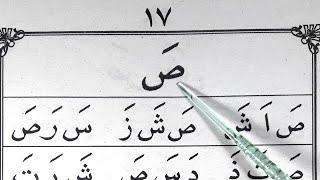 ١٧
صَ
صَ اَ شَ صَ شَ زَ سَ رَ صَ
دَ سَ صَ شَ رَ تَ